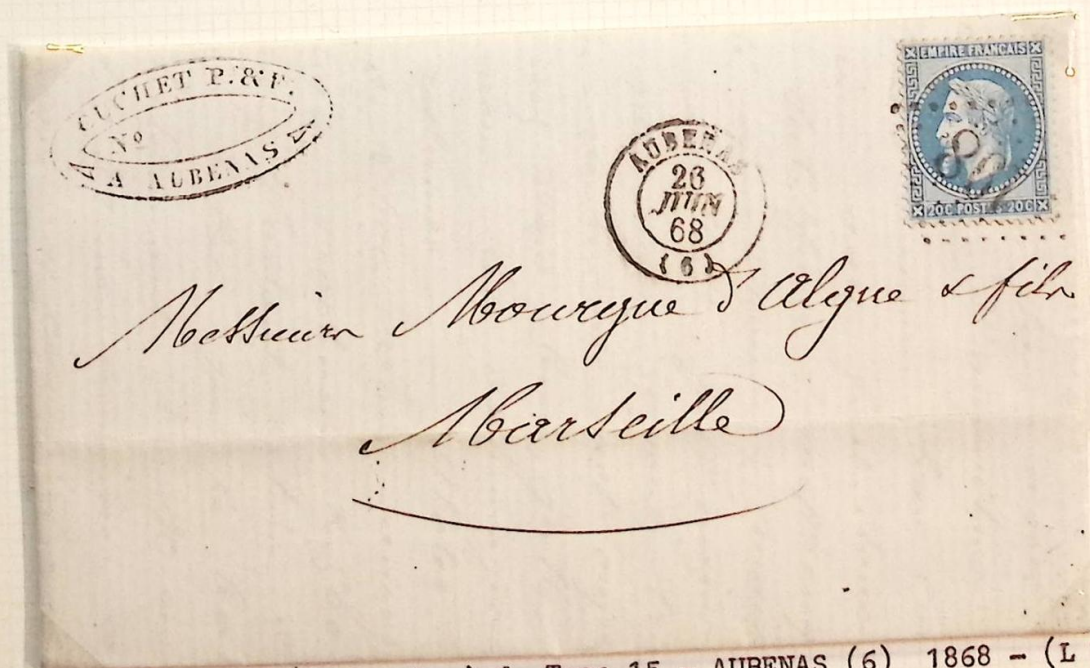 CUCHET P. & F.
No
A AUBENAS
EMPIRE FRANCAIS
20C POSTES 20C
AUBENAS
26
JUIN
68
(6)
Messieurs Mourgue d'Algue & fils
Marseille
15 AUBENAS (6) 1868 - (L